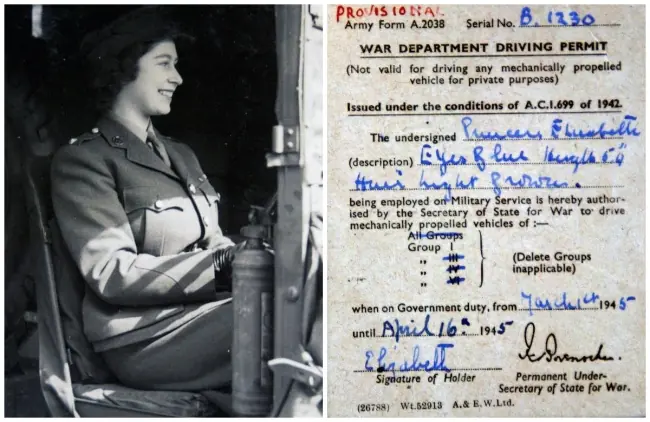 PROVISIONAL
Army Form A.2038 Serial No. B. 1230
WAR DEPARTMENT DRIVING PERMIT
(Not valid for driving any mechanically propelled
vehicle for private purposes)
Issued under the conditions of A.C.I.699 of 1942.
The undersigned Princess Elizabeth
(description) Eyes Blue Height
Hair Light Brown.
being employed on Military Service is hereby author-
ised by the Secretary of State for War to drive
mechanically propelled vehicles of :—
All Groups
Group I
„ III
„ IV
„ VI
(Delete Groups
inapplicable)
when on Government duty, from March 1st 1945
until April 16th 1945
Elizabeth
Signature of Holder
Permanent Under-
Secretary of State for War.
(26788) Wt.52913 A.& E.W.Ltd.